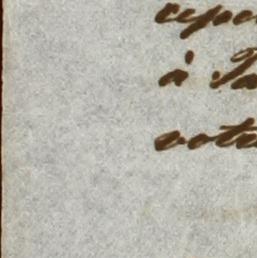 cepe
à Ta
votre